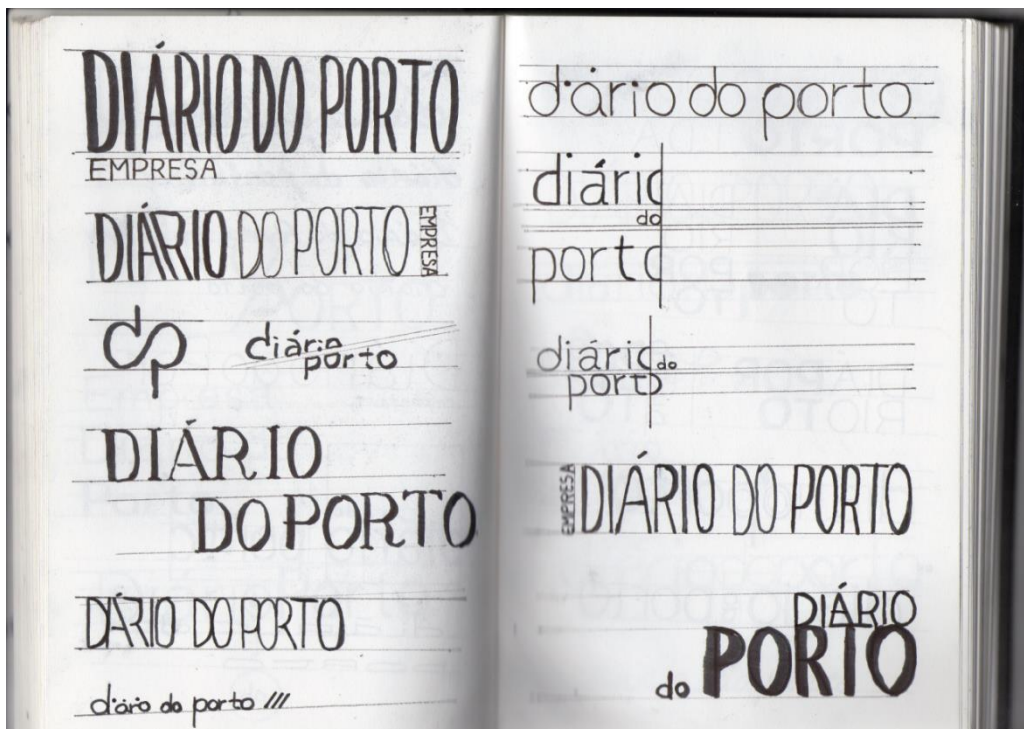 DIÁRIO DO PORTO
EMPRESA
DIÁRIO DO PORTO EMPRESA
dp
diário
porto
DIÁRIO
DO PORTO
DÁRIO DO PORTO
diário do porto ///
diário do porto
diário
do
porto
diário do
porto
EMPRESA DIÁRIO DO PORTO
DIÁRIO
do PORTO